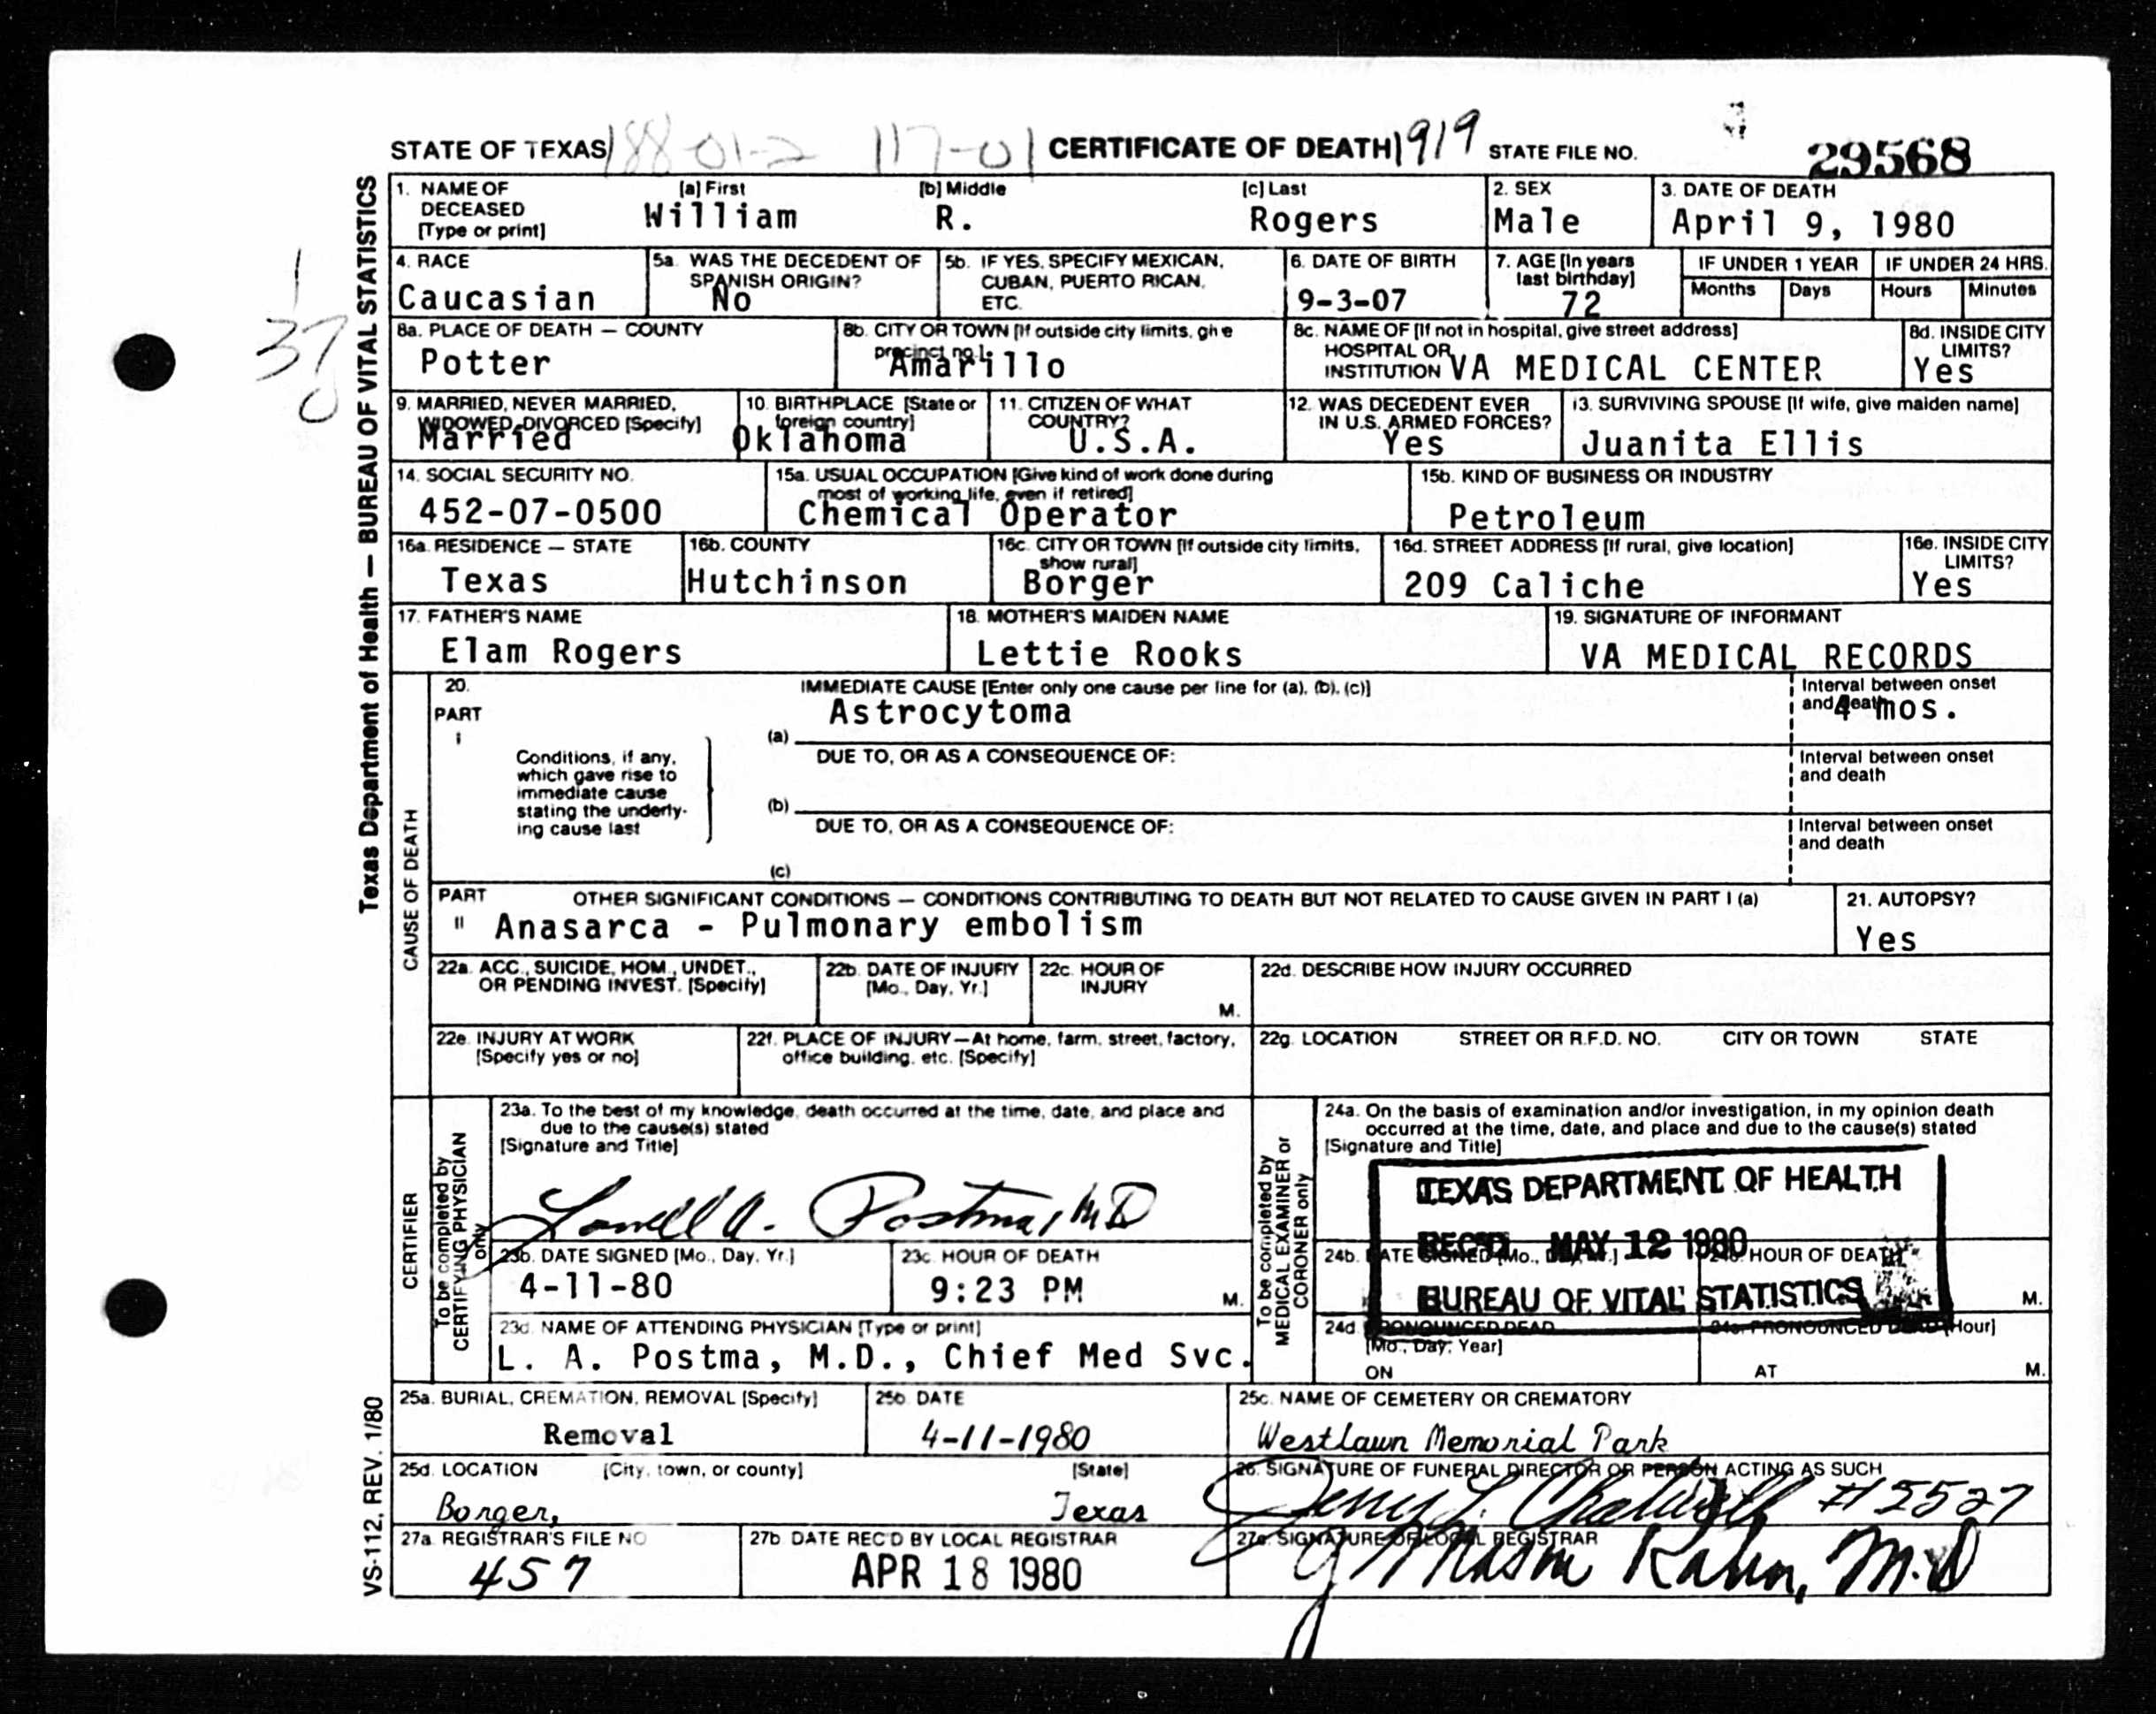 STATE OF TEXAS 188-01-2 117-01 CERTIFICATE OF DEATH 1919 STATE FILE NO. 29568
Texas Department of Health — BUREAU OF VITAL STATISTICS
1
37
0
1. NAME OF DECEASED [Type or print] [a] First [b] Middle [c] Last
William R. Rogers
2. SEX
Male
3. DATE OF DEATH
April 9, 1980
4. RACE
Caucasian
5a. WAS THE DECEDENT OF SPANISH ORIGIN?
No
5b. IF YES, SPECIFY MEXICAN, CUBAN, PUERTO RICAN, ETC.
6. DATE OF BIRTH
9-3-07
7. AGE [In years last birthday]
72
IF UNDER 1 YEAR
Months Days
IF UNDER 24 HRS.
Hours Minutes
8a. PLACE OF DEATH — COUNTY
Potter
8b. CITY OR TOWN [If outside city limits, give precinct no.]
Amarillo
8c. NAME OF [If not in hospital, give street address] HOSPITAL OR INSTITUTION
VA MEDICAL CENTER
8d. INSIDE CITY LIMITS?
Yes
9. MARRIED, NEVER MARRIED, WIDOWED, DIVORCED [Specify]
Married
10. BIRTHPLACE [State or foreign country]
Oklahoma
11. CITIZEN OF WHAT COUNTRY?
U.S.A.
12. WAS DECEDENT EVER IN U.S. ARMED FORCES?
Yes
13. SURVIVING SPOUSE [If wife, give maiden name]
Juanita Ellis
14. SOCIAL SECURITY NO.
452-07-0500
15a. USUAL OCCUPATION [Give kind of work done during most of working life, even if retired]
Chemical Operator
15b. KIND OF BUSINESS OR INDUSTRY
Petroleum
16a. RESIDENCE — STATE
Texas
16b. COUNTY
Hutchinson
16c. CITY OR TOWN [If outside city limits, show rural]
Borger
16d. STREET ADDRESS [If rural, give location]
209 Caliche
16e. INSIDE CITY LIMITS?
Yes
17. FATHER'S NAME
Elam Rogers
18. MOTHER'S MAIDEN NAME
Lettie Rooks
19. SIGNATURE OF INFORMANT
VA MEDICAL RECORDS
CAUSE OF DEATH
20. PART I
IMMEDIATE CAUSE [Enter only one cause per line for (a), (b), (c)]
Astrocytoma
(a)
Interval between onset and death
4 mos.
Conditions, if any, which gave rise to immediate cause stating the underlying cause last
DUE TO, OR AS A CONSEQUENCE OF:
(b)
Interval between onset and death
DUE TO, OR AS A CONSEQUENCE OF:
(c)
Interval between onset and death
PART II OTHER SIGNIFICANT CONDITIONS — CONDITIONS CONTRIBUTING TO DEATH BUT NOT RELATED TO CAUSE GIVEN IN PART I (a)
Anasarca - Pulmonary embolism
21. AUTOPSY?
Yes
22a. ACC., SUICIDE, HOM., UNDET., OR PENDING INVEST. [Specify]
22b. DATE OF INJURY [Mo., Day, Yr.]
22c. HOUR OF INJURY
M.
22d. DESCRIBE HOW INJURY OCCURRED
22e. INJURY AT WORK [Specify yes or no]
22f. PLACE OF INJURY—At home, farm, street, factory, office building, etc. [Specify]
22g. LOCATION STREET OR R.F.D. NO. CITY OR TOWN STATE
CERTIFIER
To be completed by CERTIFYING PHYSICIAN only
23a. To the best of my knowledge, death occurred at the time, date, and place and due to the cause(s) stated
[Signature and Title]
Lowell A. Postma, MD
23b. DATE SIGNED [Mo., Day, Yr.]
4-11-80
23c. HOUR OF DEATH
9:23 PM M.
23d. NAME OF ATTENDING PHYSICIAN [Type or print]
L. A. Postma, M.D., Chief Med Svc.
To be completed by MEDICAL EXAMINER or CORONER only
24a. On the basis of examination and/or investigation, in my opinion death occurred at the time, date, and place and due to the cause(s) stated
[Signature and Title]
TEXAS DEPARTMENT OF HEALTH
REC'D MAY 12 1980
BUREAU OF VITAL STATISTICS
24b. DATE SIGNED [Mo., Day, Yr.]
24c. HOUR OF DEATH
M.
24d. PRONOUNCED DEAD [Mo., Day, Year]
ON
24e. PRONOUNCED DEAD [Hour]
AT M.
25a. BURIAL, CREMATION, REMOVAL [Specify]
Removal
25b. DATE
4-11-1980
25c. NAME OF CEMETERY OR CREMATORY
Westlawn Memorial Park
25d. LOCATION [City, town, or county] [State]
Borger, Texas
26. SIGNATURE OF FUNERAL DIRECTOR OR PERSON ACTING AS SUCH
Jerry L. #5527
27a. REGISTRAR'S FILE NO
457
27b DATE REC'D BY LOCAL REGISTRAR
APR 18 1980
27c. SIGNATURE OF LOCAL REGISTRAR
Kahn, M.D
VS-112, REV. 1/80